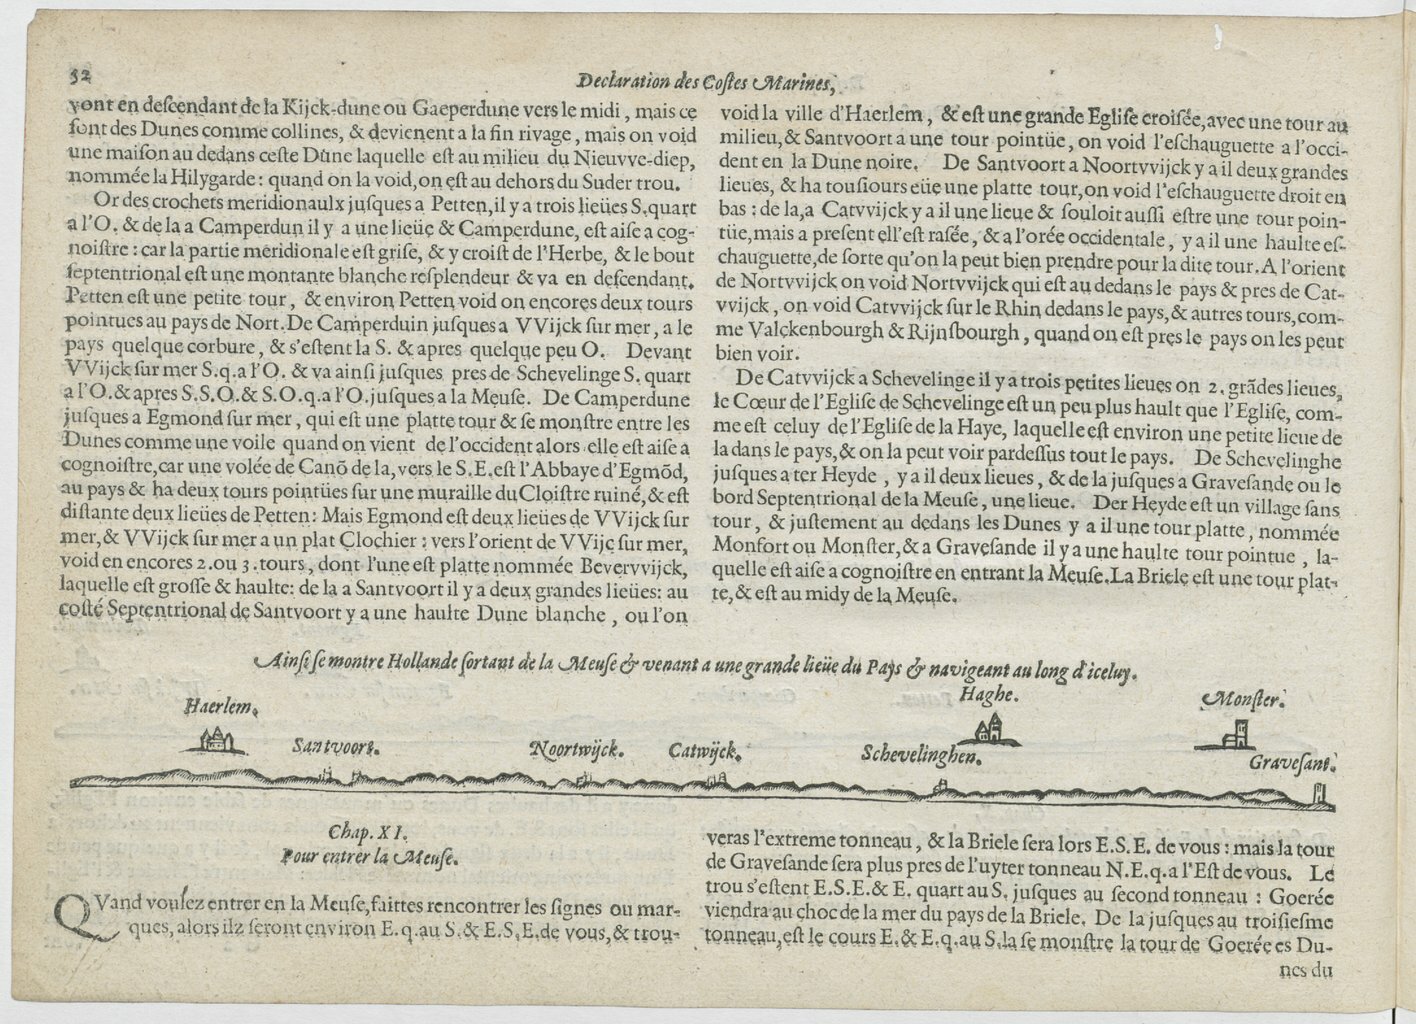 32
Declaration des Coſtes Marines,
vont en deſcendant de la Kijck-dune ou Gaeperdune vers le midi, mais ce
ſont des Dunes comme collines, & devienent a la fin rivage, mais on void
une maiſon au dedans ceſte Dune laquelle eſt au milieu du Nieuvve-diep,
nommée la Hilygarde: quand on la void, on eſt au dehors du Suder trou.
Or des crochets meridionaulx juſques a Petten, il y a trois lieües S. quart
a l'O. & de la a Camperdun il y a une lieüe & Camperdune, eſt aiſe a cog-
noiſtre: car la partie meridionale eſt griſe, & y croiſt de l'Herbe, & le bout
ſeptentrional eſt une montante blanche reſplendeur & va en deſcendant.
Petten eſt une petite tour, & environ Petten void on encores deux tours
pointues au pays de Nort. De Camperduin juſques a VVijck ſur mer, a le
pays quelque corbure, & s'eſtent la S. & apres quelque peu O. Devant
VVijck ſur mer S.q.a l'O. & va ainſi juſques pres de Schevelinge S. quart
a l'O. & apres S.S.O. & S.O.q.a l'O. juſques a la Meuſe. De Camperdune
juſques a Egmond ſur mer, qui eſt une platte tour & ſe monſtre entre les
Dunes comme une voile quand on vient de l'occident alors elle eſt aiſe a
cognoiſtre, car une volée de Canõ de la, vers le S.E. eſt l'Abbaye d'Egmõd,
au pays & ha deux tours pointües ſur une muraille du Cloiſtre ruiné, & eſt
diſtante deux lieües de Petten: Mais Egmond eſt deux lieües de VVijck ſur
mer, & VVijck ſur mer a un plat Clochier: vers l'orient de VVijc ſur mer,
void en encores 2. ou 3. tours, dont l'une eſt platte nommée Bevervvijck,
laquelle eſt groſſe & haulte: de la a Santvoort il y a deux grandes lieües: au
coſté Septentrional de Santvoort y a une haulte Dune blanche, ou l'on
void la ville d'Haerlem, & eſt une grande Egliſe croiſée, avec une tour au
milieu, & Santvoort a une tour pointüe, on void l'eſchauguette a l'occi-
dent en la Dune noire. De Santvoort a Noortvvijck y a il deux grandes
lieues, & ha touſiours eüe une platte tour, on void l'eſchauguette droit en
bas: de la, a Catvvijck y a il une lieue & ſouloit auſſi eſtre une tour poin-
tüe, mais a preſent ell'eſt raſée, & a l'orée occidentale, y a il une haulte eſ-
chauguette, de ſorte qu'on la peut bien prendre pour la dite tour. A l'orient
de Nortvvijck on void Nortvvijck qui eſt au dedans le pays & pres de Cat-
vvijck, on void Catvvijck ſur le Rhin dedans le pays, & autres tours, com-
me Valckenbourgh & Rijnſbourgh, quand on eſt pres le pays on les peut
bien voir.
De Catvvijck a Schevelinge il y a trois petites lieues on 2. grãdes lieues,
le Cœur de l'Egliſe de Schevelinge eſt un peu plus hault que l'Egliſe, com-
me eſt celuy de l'Egliſe de la Haye, laquelle eſt environ une petite lieue de
la dans le pays, & on la peut voir pardeſſus tout le pays. De Schevelinghe
juſques a ter Heyde, y a il deux lieues, & de la juſques a Graveſande ou le
bord Septentrional de la Meuſe, une lieue. Der Heyde eſt un village ſans
tour, & juſtement au dedans les Dunes y a il une tour platte, nommée
Monfort ou Monſter, & a Graveſande il y a une haulte tour pointue, la-
quelle eſt aiſe a cognoiſtre en entrant la Meuſe. La Briele eſt une tour plat-
te, & eſt au midy de la Meuſe.
Ainſi ſe montre Hollande ſortant de la Meuſe & venant a une grande lieüe du Pays & navigeant au long d'iceluy.
Haerlem.
Haghe.
Monſter.
Santvoort.
Noortwijck.
Catwijck.
Schevelinghen.
Graveſant.
Chap. XI.
Pour entrer la Meuſe.
QVand voulez entrer en la Meuſe, faittes rencontrer les ſignes ou mar-
ques, alors ilz ſeront environ E.q.au S. & E.S.E. de vous, & trou-
veras l'extreme tonneau, & la Briele ſera lors E.S.E. de vous: mais la tour
de Graveſande ſera plus pres de l'uyter tonneau N.E.q.a l'Eſt de vous. Le
trou s'eſtent E.S.E. & E. quart au S. juſques au ſecond tonneau: Goerée
viendra au choc de la mer du pays de la Briele. De la juſques au troiſieſme
tonneau, eſt le cours E. & E.q.au S. la ſe monſtre la tour de Goerée es Du-
nes du